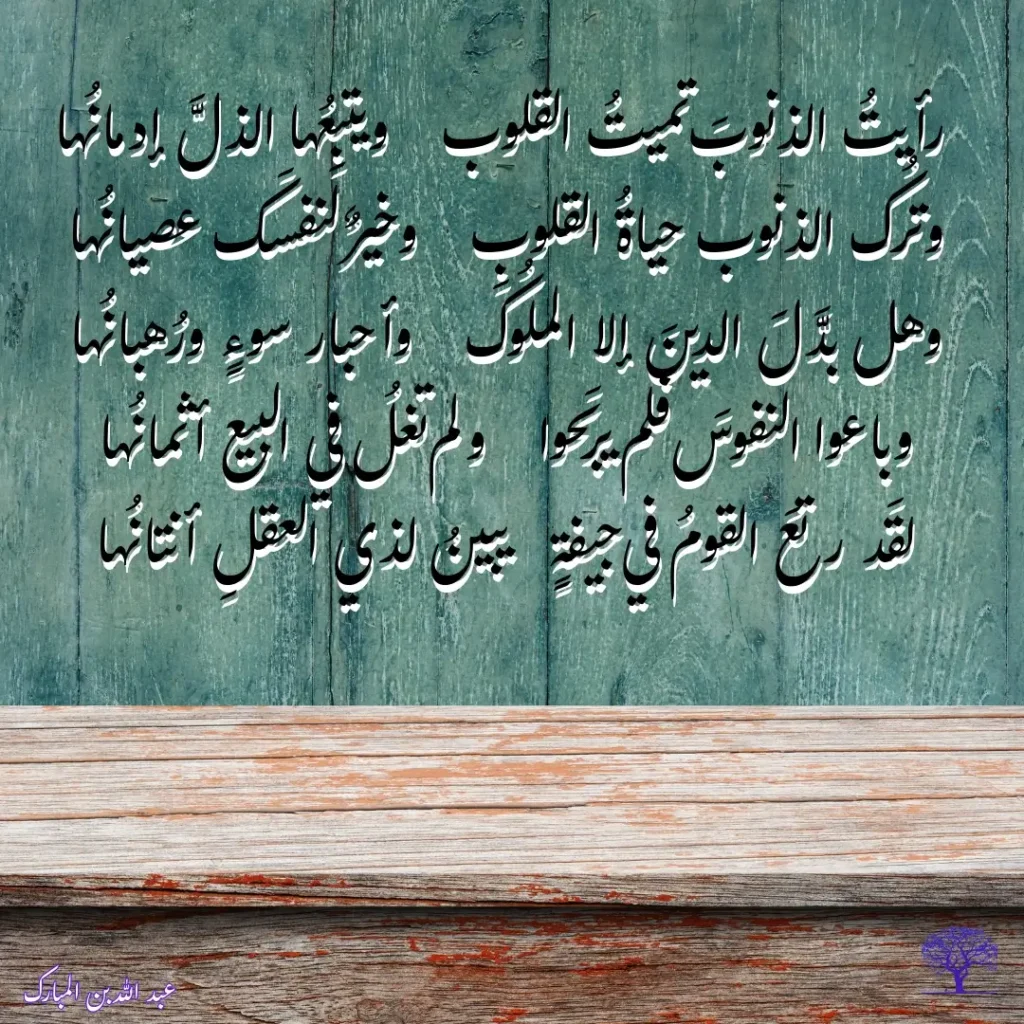 رأيتُ الذنوبَ تميتُ القلوب ويتبِعُها الذلَّ إدمانُها
وتُرك الذنوب حياةُ القلوبِ وخيرٌ لنفسَك عصيانُها
وهل بدَّلَ الدينَ إلا الملُوكَ وأحبار سوءٍ ورُهبانُها
وباعوا النفوسَ فلم يربَحوا ولم تغلُ في البيع أثمانُها
لقَد رتعُ القومُ في جيفةٍ يبينُ لذي العقلِ أنتانُها
عبد الله بن المبارك